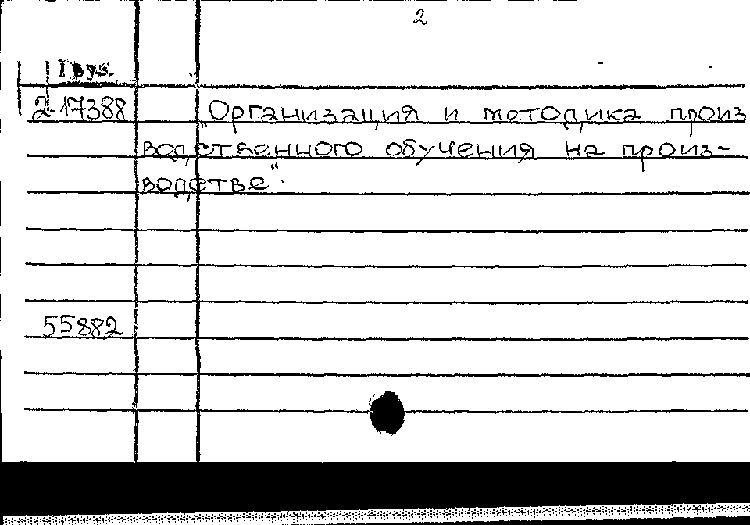 2
I вуз.
2-17388 „Организация и методика произ
водственного обучения на произ-
водстве".
55882